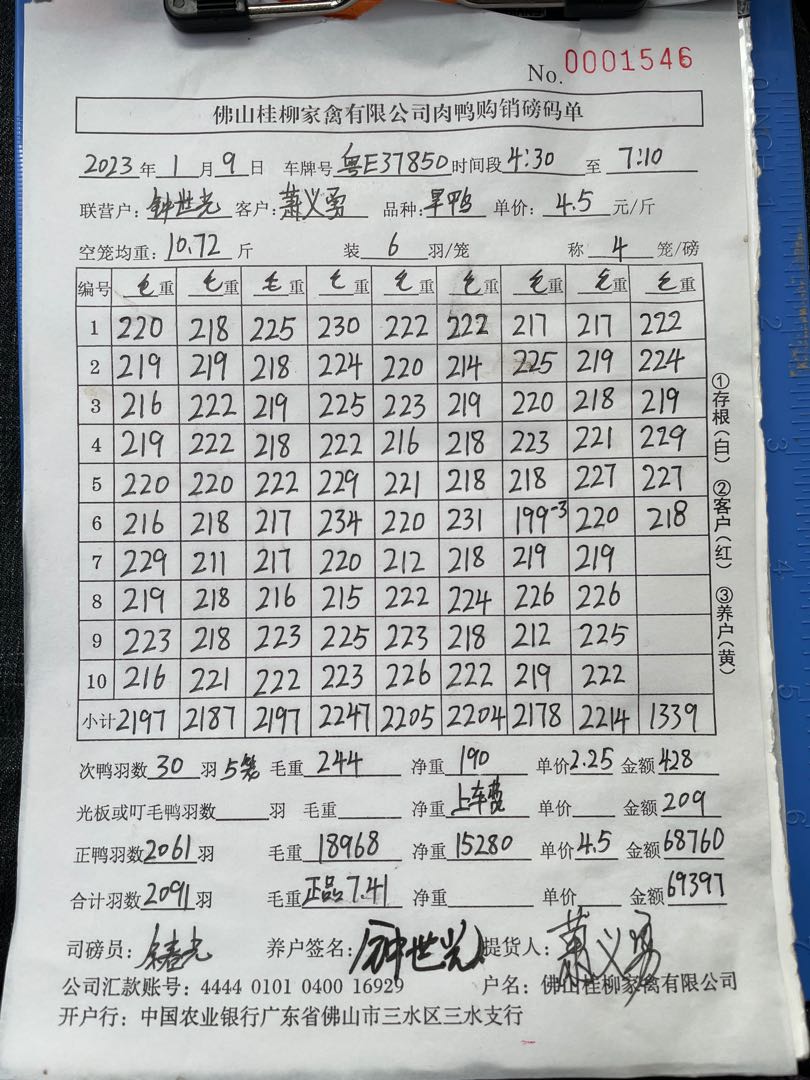 No. 0001546
佛山桂柳家禽有限公司肉鸭购销磅码单
2023年1月9日 车牌号粤E37850时间段4:30至7:10
联营户:钟世光 客户:萧义勇 品种:旱鸭 单价:4.5元/斤
空笼均重:10.72斤 装6羽/笼 称4笼/磅
编号 毛重 毛重 毛重 毛重 毛重 毛重 毛重 毛重 毛重
1 220 218 225 230 222 222 217 217 222
2 219 219 218 224 220 214 225 219 224
3 216 222 219 225 223 219 220 218 219
4 219 222 218 222 216 218 223 221 229
5 220 220 222 229 221 218 218 227 227
6 216 218 217 234 220 231 199-3 220 218
7 229 211 217 220 212 218 219 219
8 219 218 216 215 222 224 226 226
9 223 218 223 225 223 218 212 225
10 216 221 222 223 226 222 219 222
小计 2197 2187 2197 2247 2205 2204 2178 2214 1339
次鸭羽数30羽5笼 毛重244 净重190 单价2.25 金额428
光板或叮毛鸭羽数 羽 毛重 净重上车费 单价 金额209
正鸭羽数2061羽 毛重18968 净重15280 单价4.5 金额68760
合计羽数2091羽 毛重正品7.41 净重 单价 金额69397
司磅员: 养户签名:钟世光 提货人:萧义勇
公司汇款账号:4444 0101 0400 16929 户名:佛山桂柳家禽有限公司
开户行:中国农业银行广东省佛山市三水区三水支行
①存根(白) ②客户(红) ③养户(黄)